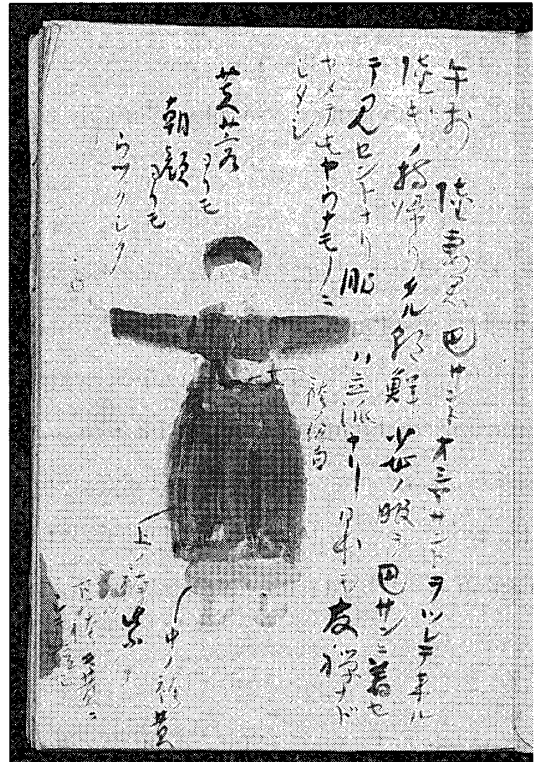 午前 陸妻君巴サントオシマサントヲツレテ来ル
陸氏ノ持帰リタル朝鮮少女ノ服ヲ巴サンニ着セ
テ見セントナリ 服ハ立派ナリ 日本モ友禅ナド
ヤメテ ヤウナモノニ
シタシ
芙蓉よりも
朝顔よりも
うつくしく
上ノ袴 紫
中ノ袴 黄